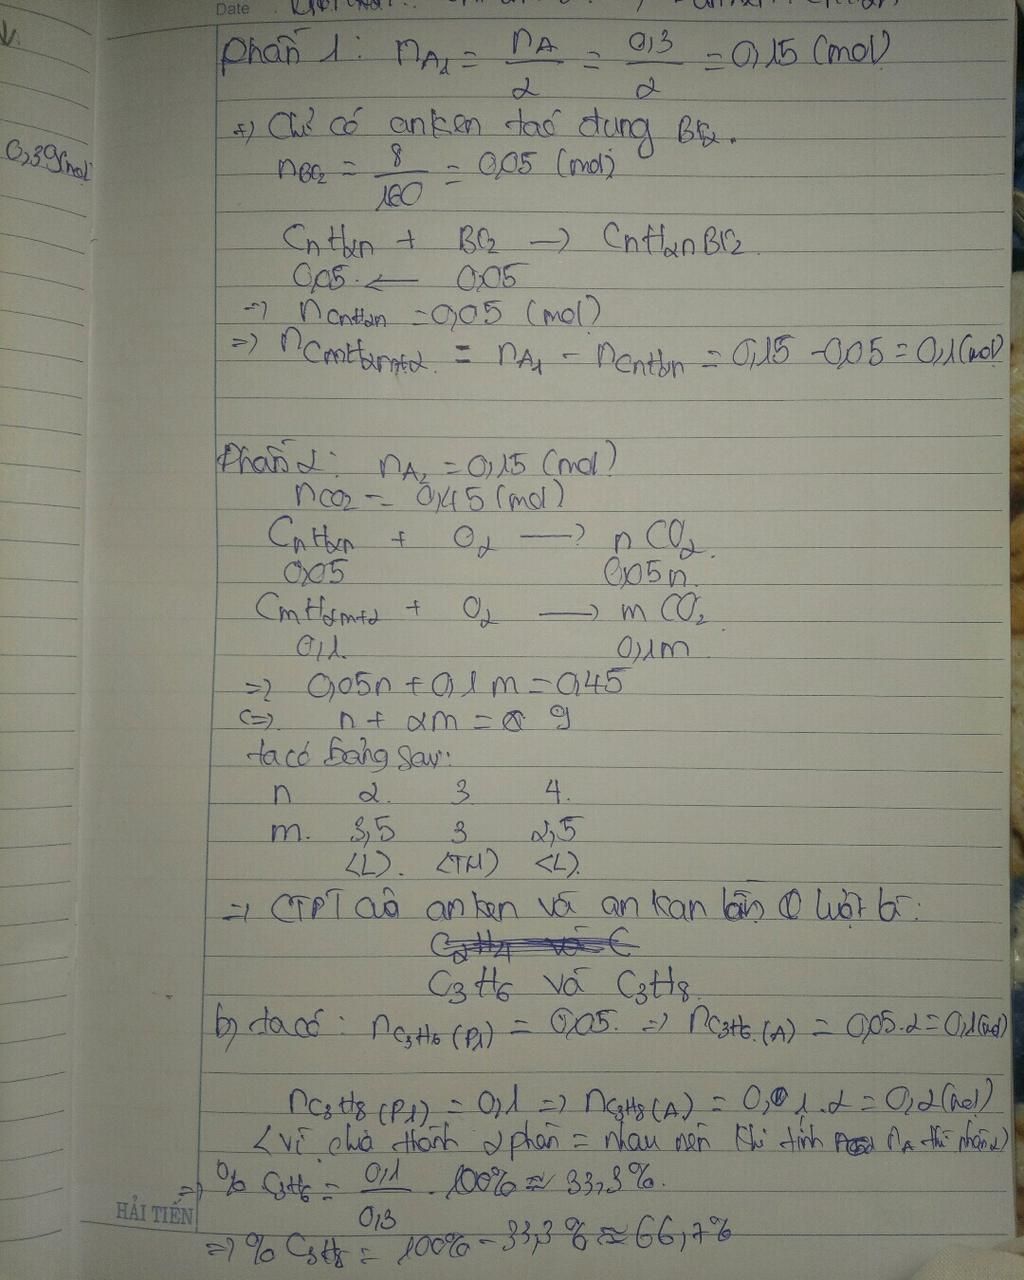 Date
0,39(mol)
phần 1: nA1 = nA/2 = 0,3/2 = 0,15 (mol)
+) Chỉ có anken tác dụng Br2.
nBr2 = 8/160 = 0,05 (mol)
CnH2n + Br2 → CnH2nBr2
0,05 ← 0,05
=> nCnH2n = 0,05 (mol)
=> nCmH2m+2 = nA1 - nCnH2n = 0,15 - 0,05 = 0,1(mol)
Phần 2: nA2 = 0,15 (mol)
nCO2 = 0,45 (mol)
CnH2n + O2 → nCO2
0,05 0,05n.
CmH2m+2 + O2 → mCO2
0,1 0,1m
=> 0,05n + 0,1m = 0,45
<=> n + 2m = 9
ta có bảng sau:
n 2 3 4.
m. 3,5 3 2,5
<L). <TM) <L).
=> CTPT của anken và ankan lần lượt là:
C3H6 và C3H8.
b) ta có: nC3H6(P1) = 0,05. => nC3H6(A) = 0,05.2 = 0,1(mol)
nC3H8(P1) = 0,1 => nC3H8(A) = 0,1.2 = 0,2(mol)
<vì chia thành 2 phần = nhau nên khi tính nA thì nhân 2)
=> % C3H6 = 0,1/0,3 . 100% ≈ 33,3%.
=> % C3H8 = 100% - 33,3% ≈ 66,7%
HẢI TIẾN